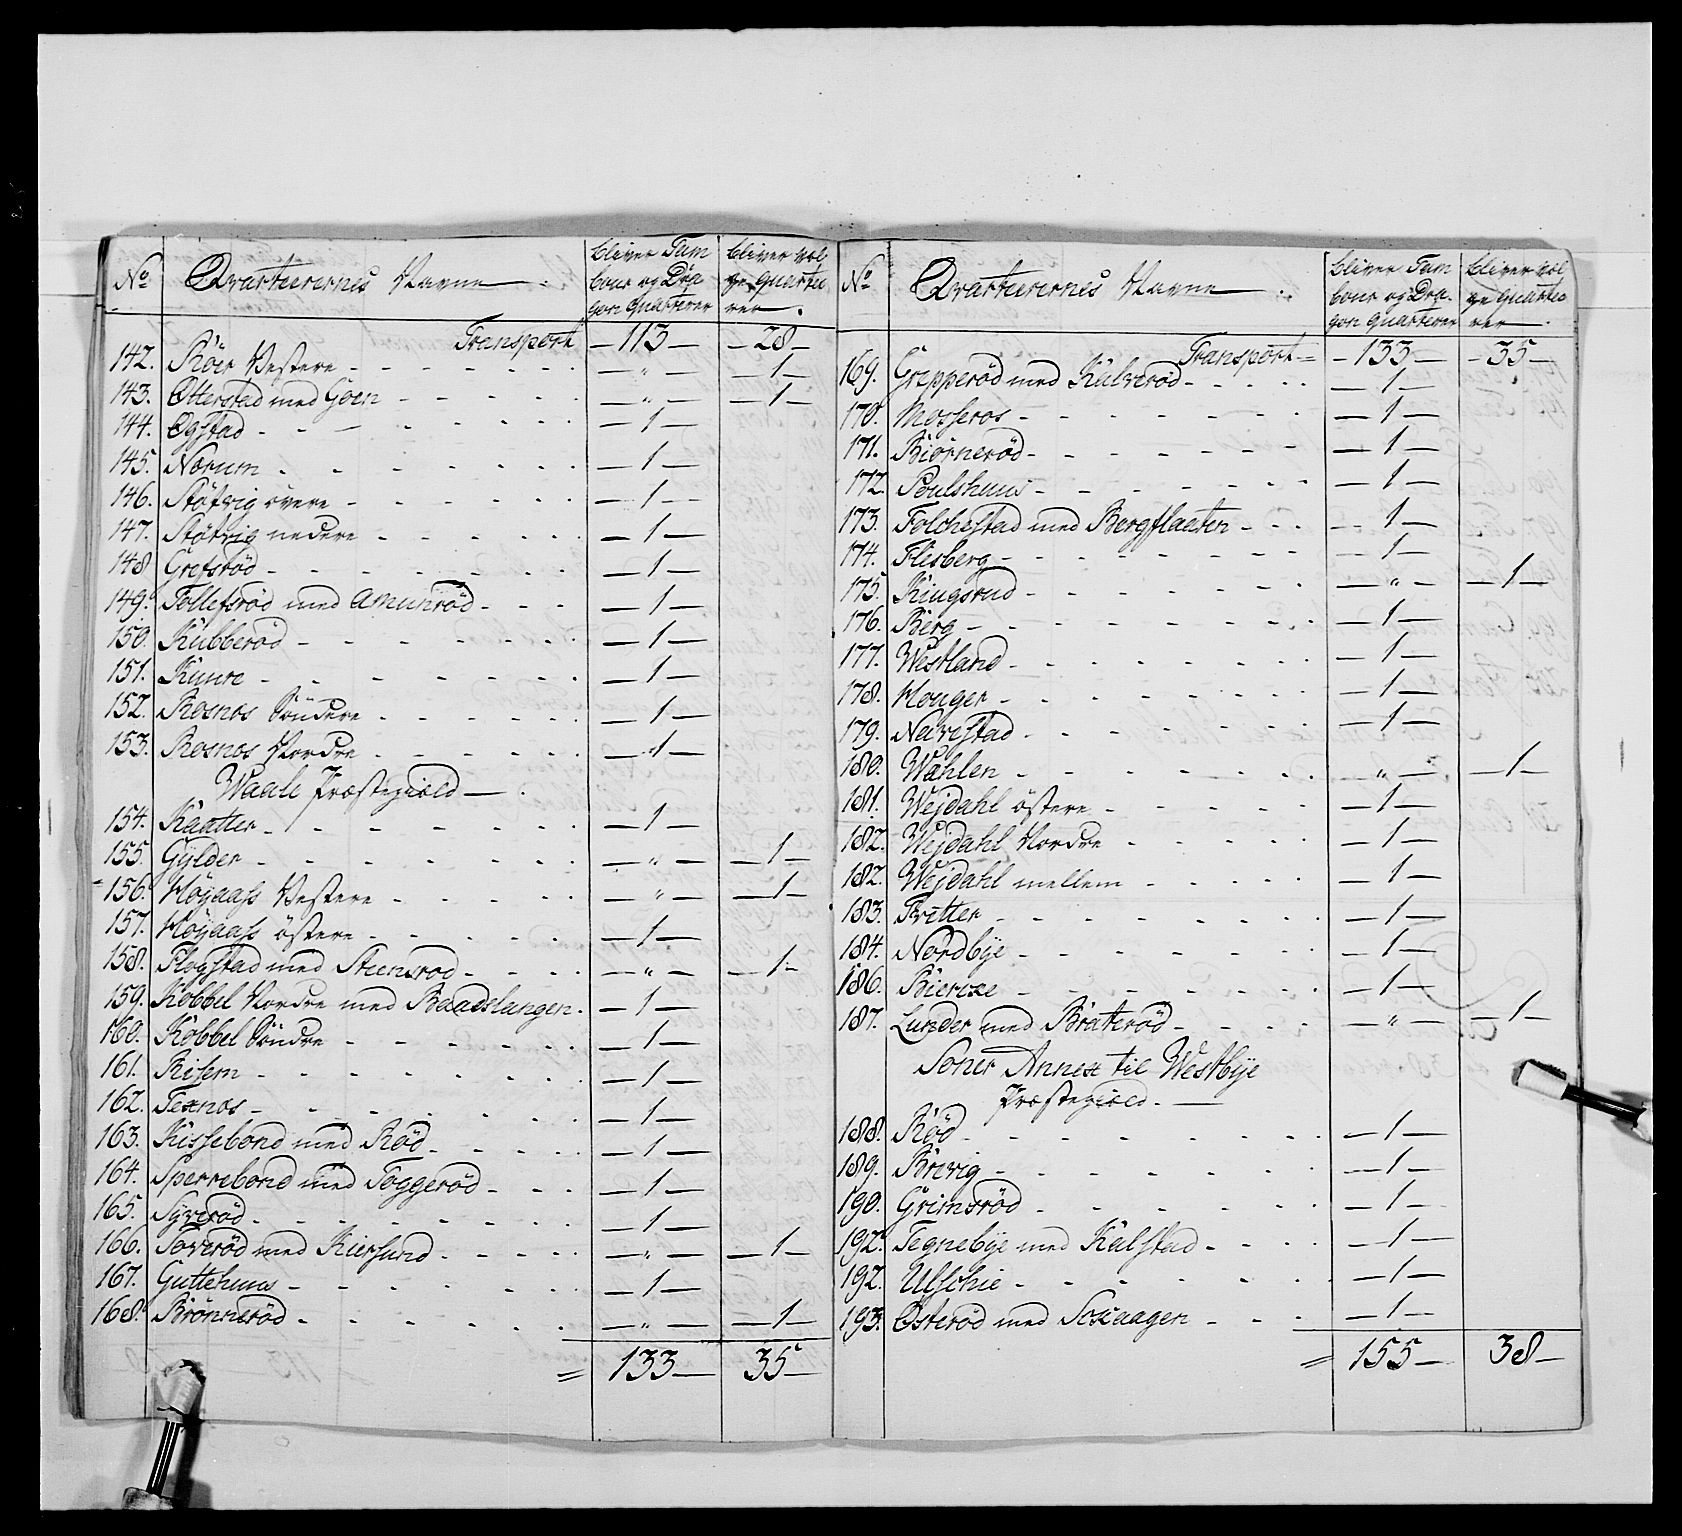 No Qvarteerernes Navne bliver Tambour og Dragon Quarterer bliver ledige Quarteerer.
Transport — 113 — — 28 —
142. Röer Vestere — " — — 1 —
143. Otterstad med Goen — " — — 1 —
144. Ogstad — 1 —
145. Norum — 1 —
146. Stöttvig övere — 1 —
147. Stöttvig nedere — 1 —
148 Grefsröd — 1 —
149. Tollefsröd med Amunröd — 1 —
150. Kubberöd — 1 —
151. Kunre — 1 —
152. Rosnos Söndere — 1 —
153. Rosnos Nordre — 1 —
Waale Præstegield —
154. Kaatter — 1 —
155. Gylder — " — — 1 —
156. Höyaass Vestere — " — — 1 —
157. Höyaass östere — 1 —
158. Flogstad med Steensrod — " — — 1 —
159. Kobbel Nordre med Baadslangen — 1 —
160. Kobbel Söndre — 1 —
161. Risem — 1 —
162. Texnos — 1 —
163. Kissebond med Röd — 1 —
164. Sperrebond med Toggeröd — 1 —
165. Syveröd — 1 —
166. Soveröd med Kiersund — " — — 1 —
167. Guttehuus — 1 —
168. Brönneröd — " — — 1 —
= 133 — 35 —
No Qvarteerernes Navne. bliver Tambour og Dragon Quarterer bliver ledige Quarteerer.
Transport = — 133 — — 35 —
169. Grepperöd med Kalveröd — 1 —
170. Mosseros — 1 —
171. Biörneröd — 1 —
172. Poulshuus — 1 —
173. Folchestad med Bergflaeten — 1 —
174. Flesberg — 1 —
175. Kingsrud — " — — 1 —
176. Berg — 1 —
177. Westland — 1 —
178. Houger — 1 —
179. Navestad — 1 —
180. Wahlen — " — — 1 —
181. Wejdahl östere — 1 —
182. Wejdahl Nordre — 1 —
182. Wejdahl mellem — 1 —
183. Fritter — 1 —
184. Nordbye — 1 —
186. Biercke — 1 —
187. Lunder med Brateröd — " — — 1 —
Soner Annex til Westbye
Præstegield. —
188. Röd — 1 —
189. Brevig — 1 —
190. Grimsröd — 1 —
192. Tegnebye med Kalstad — 1 —
192. Ulschie — 1 —
193. Osteröd med Soxaagen — 1 —
= 155 — 38 —